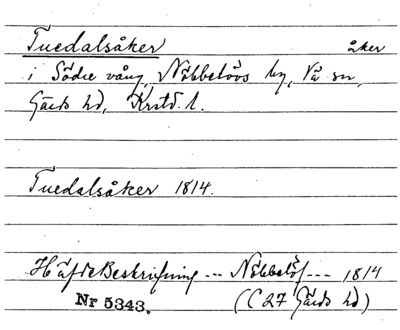 Tuedalsåker åker
i Södre vång, Nöbbelövs by, Vä sn,
Gärds hd, Krstd. l.
Tuedalsåker 1814.
HäfdeBeskrifning --- Nöbbelöf --- 1814
Nr 5343. (C 27 Gärds hd)